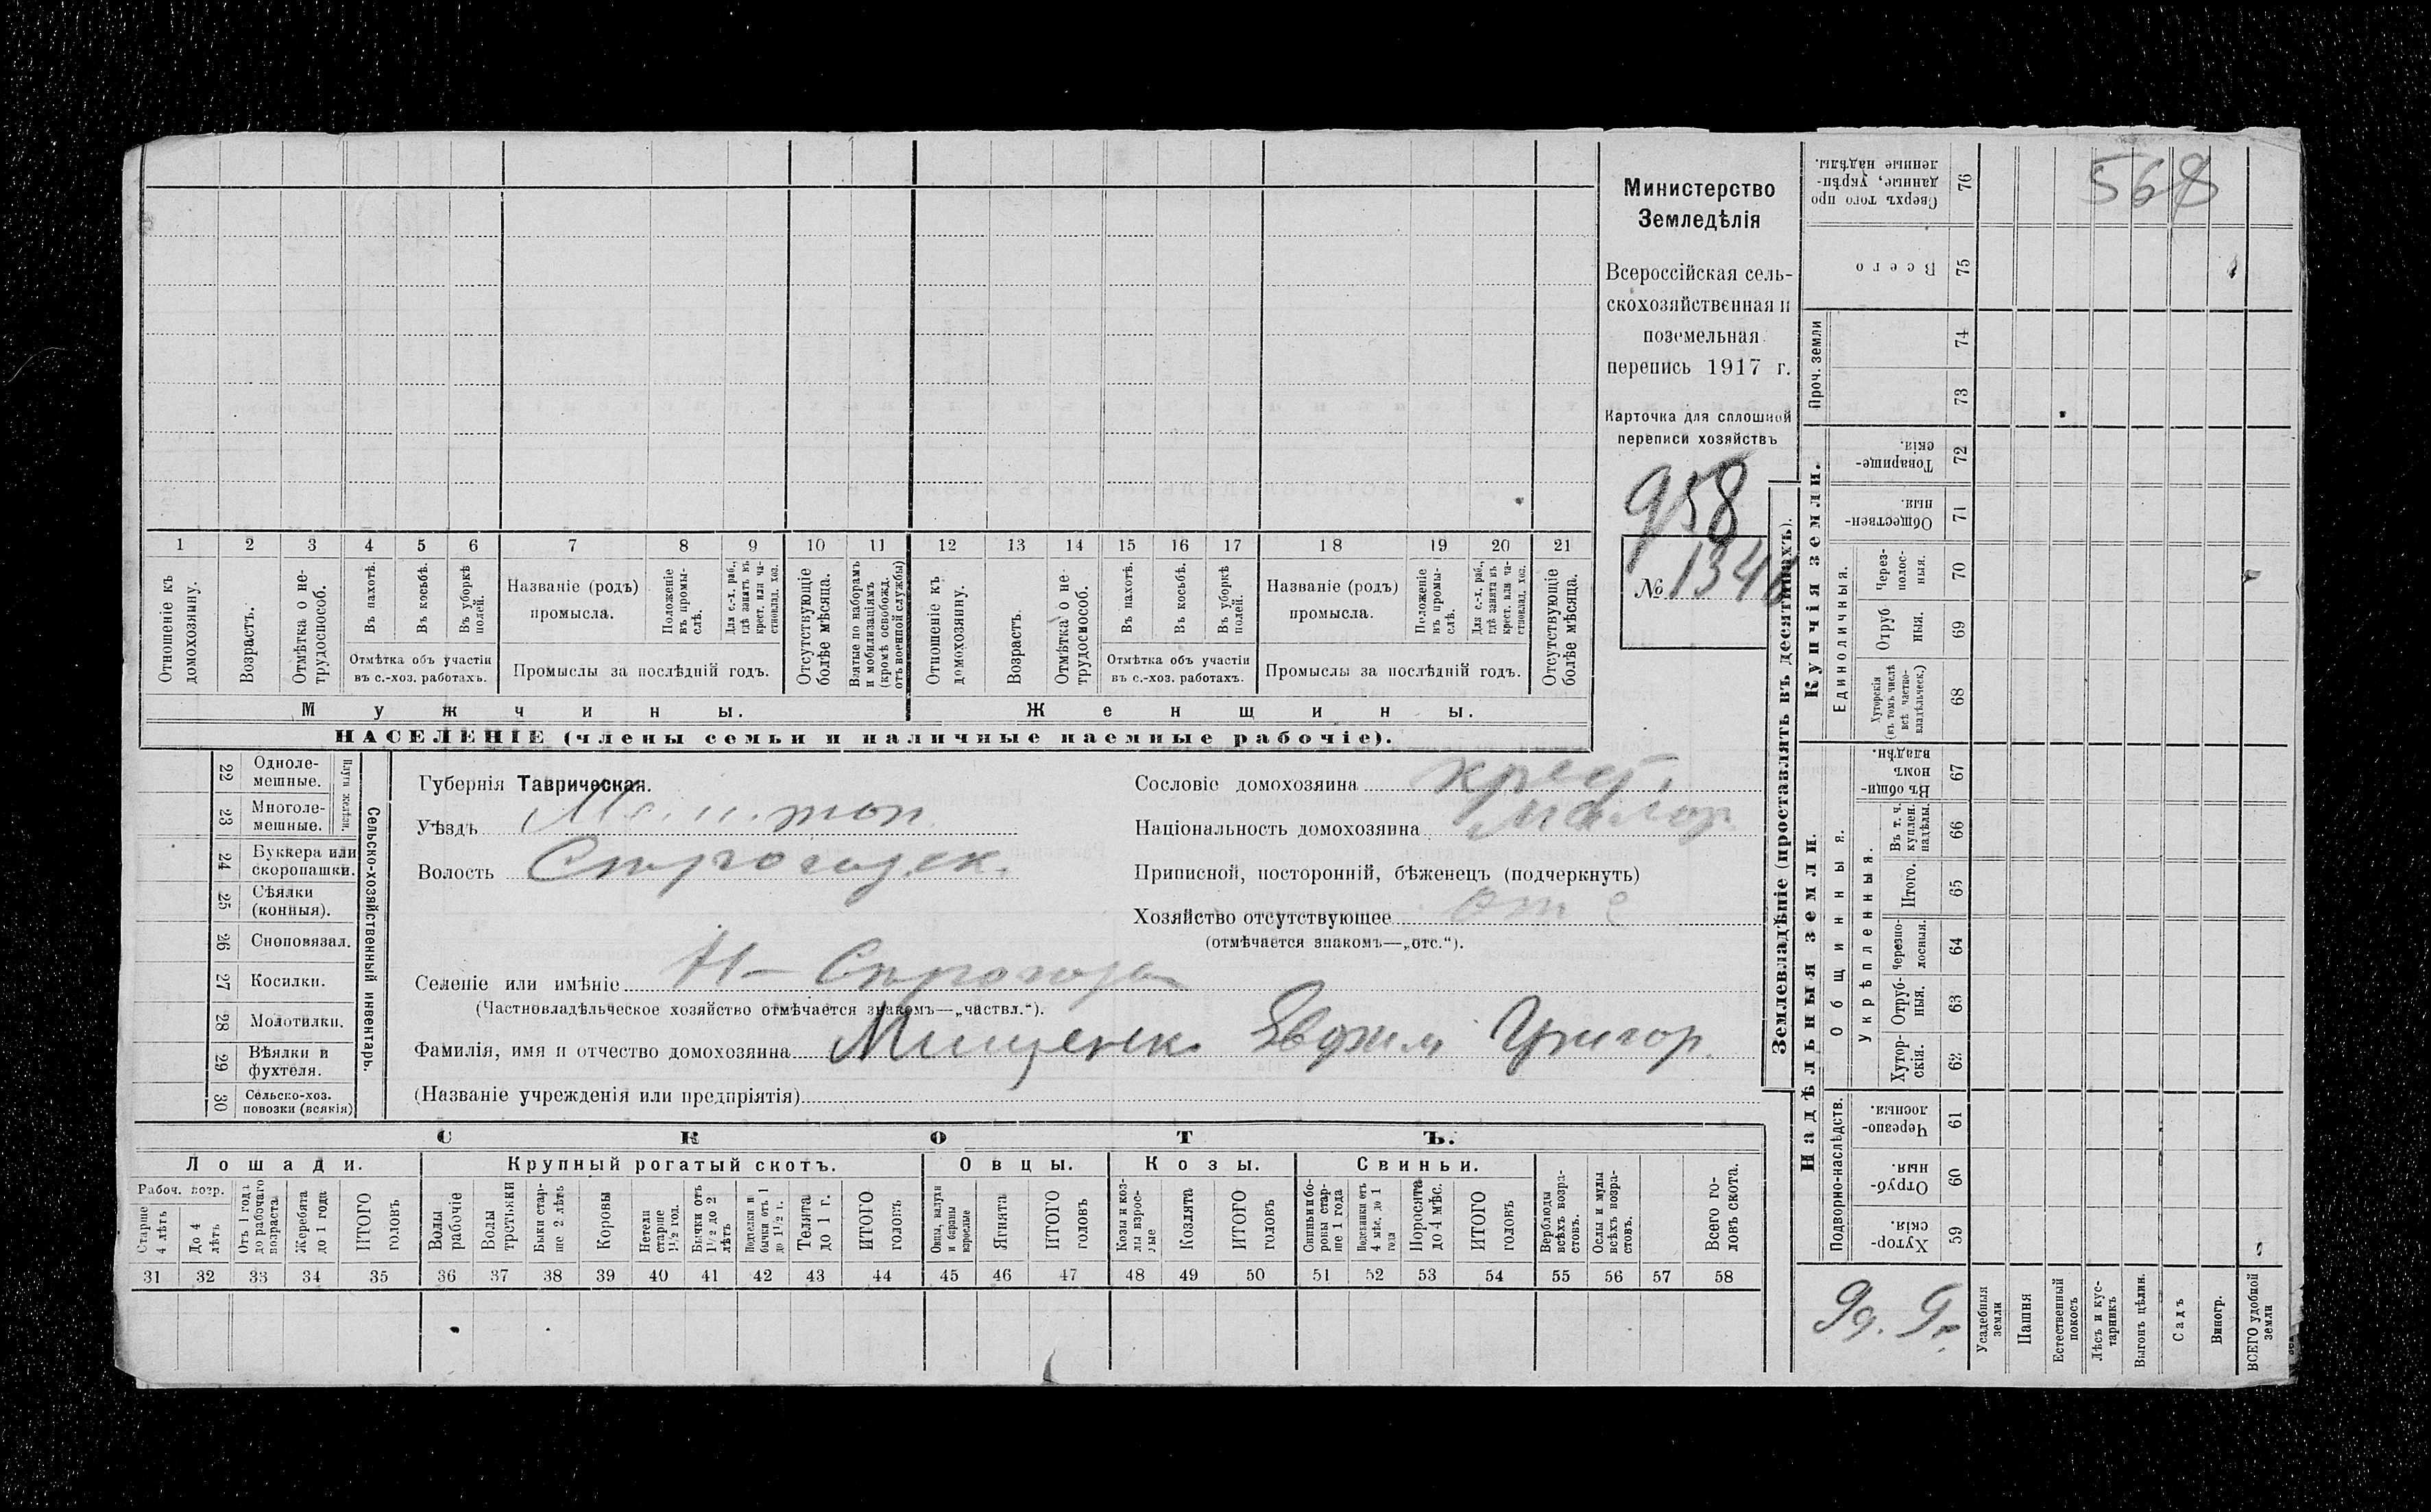 568
Министерство
Земледѣлія
Всероссійская сель-
скохозяйственная и
поземельная
перепись 1917 г.
Карточка для сплошной
переписи хозяйствъ
958
№ 1346
1 2 3 4 5 6 7 8 9 10 11 12 13 14 15 16 17 18 19 20 21
Отношеніе къ домохозяину.
Возрастъ.
Отмѣтка о не-трудоспособ.
Въ пахотѣ.
Въ косьбѣ.
Въ уборкѣ полей.
Отмѣтка объ участіи
въ с.-хоз. работахъ.
Названіе (родъ)
промысла.
Положеніе въ промы-слѣ.
Для с.-х. раб., гдѣ занятъ въ крест. или ча-стновлад. хоз.
Промыслы за послѣдній годъ.
Отсутствующіе болѣе мѣсяца.
Взятые по наборамъ и мобилизаціямъ (кромѣ освобожд. отъ военной службы)
Отношеніе къ домохозяину.
Возрастъ.
Отмѣтка о не-трудоспособ.
Въ пахотѣ.
Въ косьбѣ.
Въ уборкѣ полей.
Отмѣтка объ участіи
въ с.-хоз. работахъ.
Названіе (родъ)
промысла.
Положеніе въ промы-слѣ.
Для с.-х. раб., гдѣ занята въ крест. или ча-стновлад. хоз.
Промыслы за послѣдній годъ.
Отсутствующіе болѣе мѣсяца.
Мужчины.
Женщины.
НАСЕЛЕНІЕ (члены семьи и наличные наемные рабочіе).
22 Одноле-мешные.
23 Многоле-мешные.
Плуги желѣзн.
24 Буккера или скоропашки.
25 Сѣялки (конныя).
26 Сноповязал.
27 Косилки.
28 Молотилки.
29 Вѣялки и фухтеля.
30 Сельско-хоз. повозки (всякія)
Сельско-хозяйственный инвентарь.
Губернія Таврическая.
Уѣздъ
Волость
Сословіе домохозяина крест.
Національность домохозяина малор.
Приписной, посторонній, бѣженецъ (подчеркнуть)
Хозяйство отсутствующее
(отмѣчается знакомъ—„отс.“).
Селеніе или имѣніе Н-Сѣрогозы
(Частновладѣльческое хозяйство отмѣчается знакомъ—„частвл.“).
Фамилія, имя и отчество домохозяина Мищенко Евфим Григор.
(Названіе учрежденія или предпріятія)
СКОТЪ.
Лошади.
Крупный рогатый скотъ.
Овцы.
Козы.
Свиньи.
Рабоч. возр.
Старше 4 лѣтъ
До 4 лѣтъ
Отъ 1 года до рабочаго возраста
Жеребята до 1 года
ИТОГО головъ
Волы рабочіе
Волы третьяки
Быки стар-ше 2 лѣтъ
Коровы
Нетели старше 1½ год.
Бычки отъ 1½ до 2 лѣтъ
Подтелки и бычки отъ 1 до 1½ г.
Телята до 1 г.
ИТОГО головъ
Овцы, валухи и бараны взрослые
Ягнята
ИТОГО головъ
Козы и коз-лы взрос-лые
Козлята
ИТОГО головъ
Свиньи и бо-ровы стар-ше 1 года
Подсвинки отъ 4 мѣс. до 1 года
Поросята до 4 мѣс.
ИТОГО головъ
Верблюды всѣхъ возра-стовъ.
Ослы и мулы всѣхъ возра-стовъ.
Всего го-ловъ скота.
31 32 33 34 35 36 37 38 39 40 41 42 43 44 45 46 47 48 49 50 51 52 53 54 55 56 57 58
Землевладѣніе (проставлять въ десятинахъ).
Надѣльныя земли.
Купчія земли.
Проч. земли
Подворно-наслѣдств.
Общинныя.
Укрѣпленныя.
Единоличныя.
Сверхъ того про-данные, укрѣп-ленные надѣлы. 76
Всего 75
74
73
Товарище-скія. 72
Обществен-ныя. 71
Через-полос-ныя. 70
Отруб-ныя. 69
Хуторскія (въ томъ числѣ всѣ частно-владѣльческ.) 68
Въ общи-номъ владѣн. 67
Въ т. ч. куплен. надѣлы. 66
Итого. 65
Черезпо-лосныя. 64
Отруб-ныя. 63
Хутор-скія. 62
Черезпо-лосныя. 61
Отруб-ныя. 60
Хутор-скія. 59
Усадебныя земли
Пашня
Естественный покосъ
Лѣсъ и кус-тарникъ
Выгонъ цѣлин.
Садъ
Виногр.
ВСЕГО удобной земли